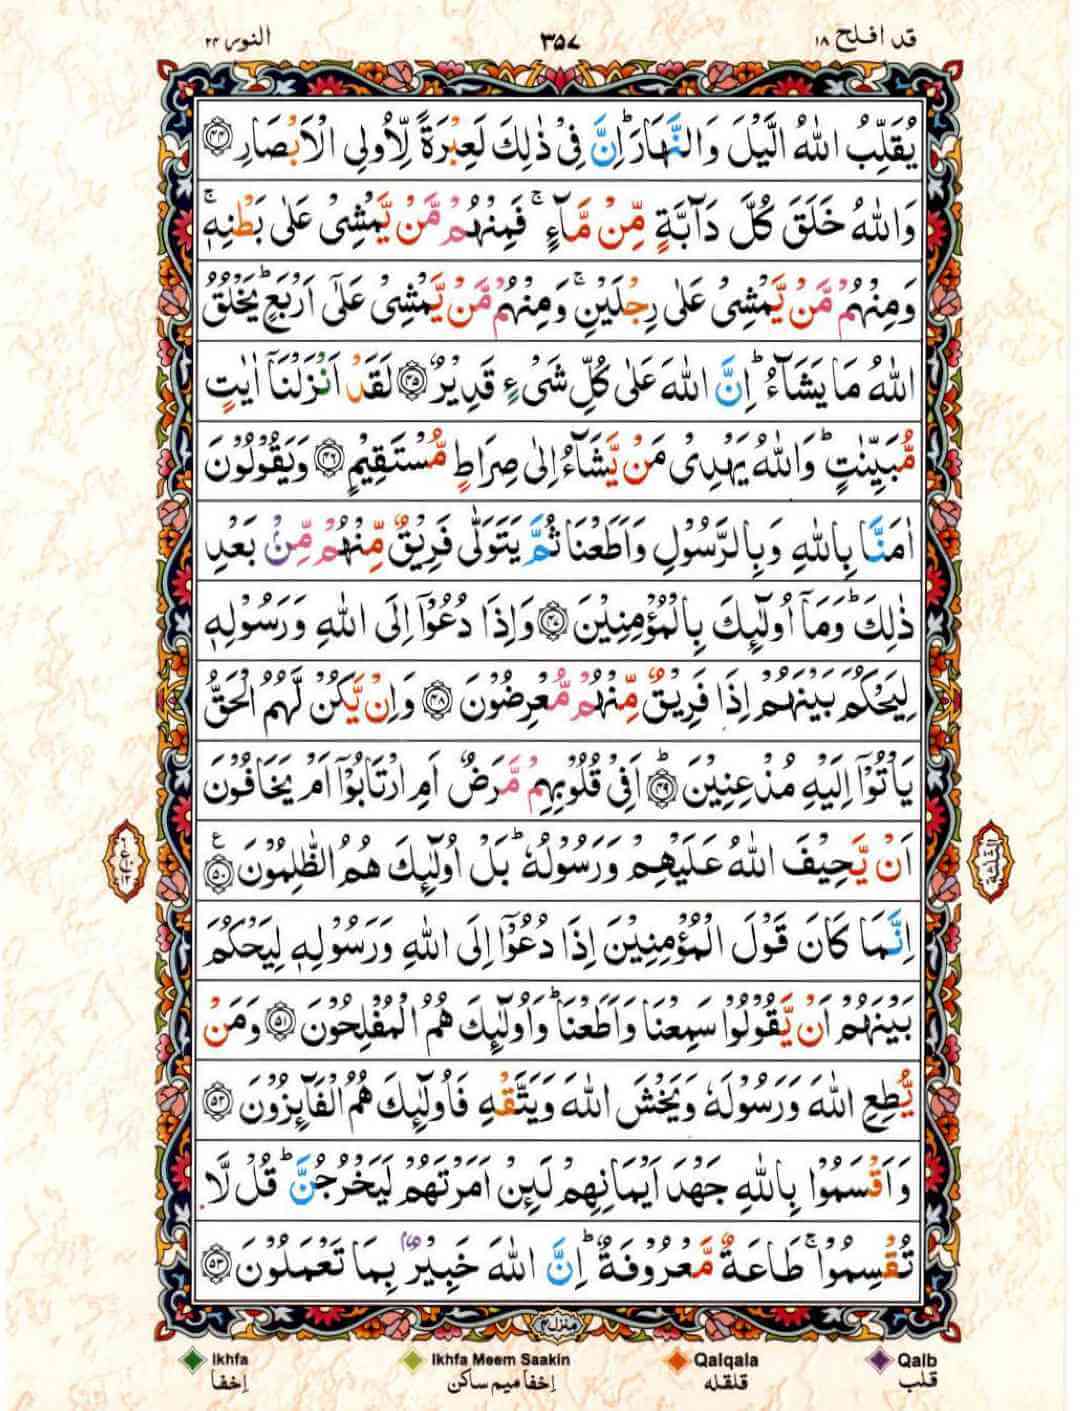 قد افلح ١٨
٣٥٧
النور ٢٤
يُقَلِّبُ اللّٰهُ الَّيْلَ وَالنَّهَارَ ؕ اِنَّ فِىْ ذٰلِكَ لَعِبْرَةً لِّاُولِى الْاَبْصَارِ ﴿۴۴﴾
وَاللّٰهُ خَلَقَ كُلَّ دَآبَّةٍ مِّنْ مَّآءٍ ۚ فَمِنْهُمْ مَّنْ يَّمْشِىْ عَلٰى بَطْنِهٖ ۚ
وَمِنْهُمْ مَّنْ يَّمْشِىْ عَلٰى رِجْلَيْنِ ۚ وَمِنْهُمْ مَّنْ يَّمْشِىْ عَلٰٓى اَرْبَعٍ ؕ يَخْلُقُ
اللّٰهُ مَا يَشَآءُ ؕ اِنَّ اللّٰهَ عَلٰى كُلِّ شَىْءٍ قَدِيْرٌ ﴿۴۵﴾ لَقَدْ اَنْزَلْنَاۤ اٰيٰتٍ
مُّبَيِّنٰتٍ ؕ وَاللّٰهُ يَهْدِىْ مَنْ يَّشَآءُ اِلٰى صِرَاطٍ مُّسْتَقِيْمٍ ﴿۴۶﴾ وَيَقُوْلُوْنَ
اٰمَنَّا بِاللّٰهِ وَبِالرَّسُوْلِ وَاَطَعْنَا ثُمَّ يَتَوَلّٰى فَرِيْقٌ مِّنْهُمْ مِّنْۢ بَعْدِ
ذٰلِكَ ؕ وَمَاۤ اُولٰٓئِكَ بِالْمُؤْمِنِيْنَ ﴿۴۷﴾ وَاِذَا دُعُوْۤا اِلَى اللّٰهِ وَرَسُوْلِهٖ
لِيَحْكُمَ بَيْنَهُمْ اِذَا فَرِيْقٌ مِّنْهُمْ مُّعْرِضُوْنَ ﴿۴۸﴾ وَاِنْ يَّكُنْ لَّهُمُ الْحَقُّ
يَاْتُوْۤا اِلَيْهِ مُذْعِنِيْنَ ؕ﴿۴۹﴾ اَفِىْ قُلُوْبِهِمْ مَّرَضٌ اَمِ ارْتَابُوْۤا اَمْ يَخَافُوْنَ
اَنْ يَّحِيْفَ اللّٰهُ عَلَيْهِمْ وَرَسُوْلُهٗ ؕ بَلْ اُولٰٓئِكَ هُمُ الظّٰلِمُوْنَ ﴿۵۰﴾ ع
اِنَّمَا كَانَ قَوْلَ الْمُؤْمِنِيْنَ اِذَا دُعُوْۤا اِلَى اللّٰهِ وَرَسُوْلِهٖ لِيَحْكُمَ
بَيْنَهُمْ اَنْ يَّقُوْلُوْا سَمِعْنَا وَاَطَعْنَا ؕ وَاُولٰٓئِكَ هُمُ الْمُفْلِحُوْنَ ﴿۵۱﴾ وَمَنْ
يُّطِعِ اللّٰهَ وَرَسُوْلَهٗ وَيَخْشَ اللّٰهَ وَيَتَّقْهِ فَاُولٰٓئِكَ هُمُ الْفَآئِزُوْنَ ﴿۵۲﴾
وَاَقْسَمُوْا بِاللّٰهِ جَهْدَ اَيْمَانِهِمْ لَئِنْ اَمَرْتَهُمْ لَيَخْرُجُنَّ ؕ قُلْ لَّا
تُقْسِمُوْا ۚ طَاعَةٌ مَّعْرُوْفَةٌ ؕ اِنَّ اللّٰهَ خَبِيْرٌۢ بِمَا تَعْمَلُوْنَ ﴿۵۳﴾
منزل ۴
Ikhfa Ikhfa Meem Saakin Qalqala Qalb
إخفا إخفا ميم ساكن قلقله قلب